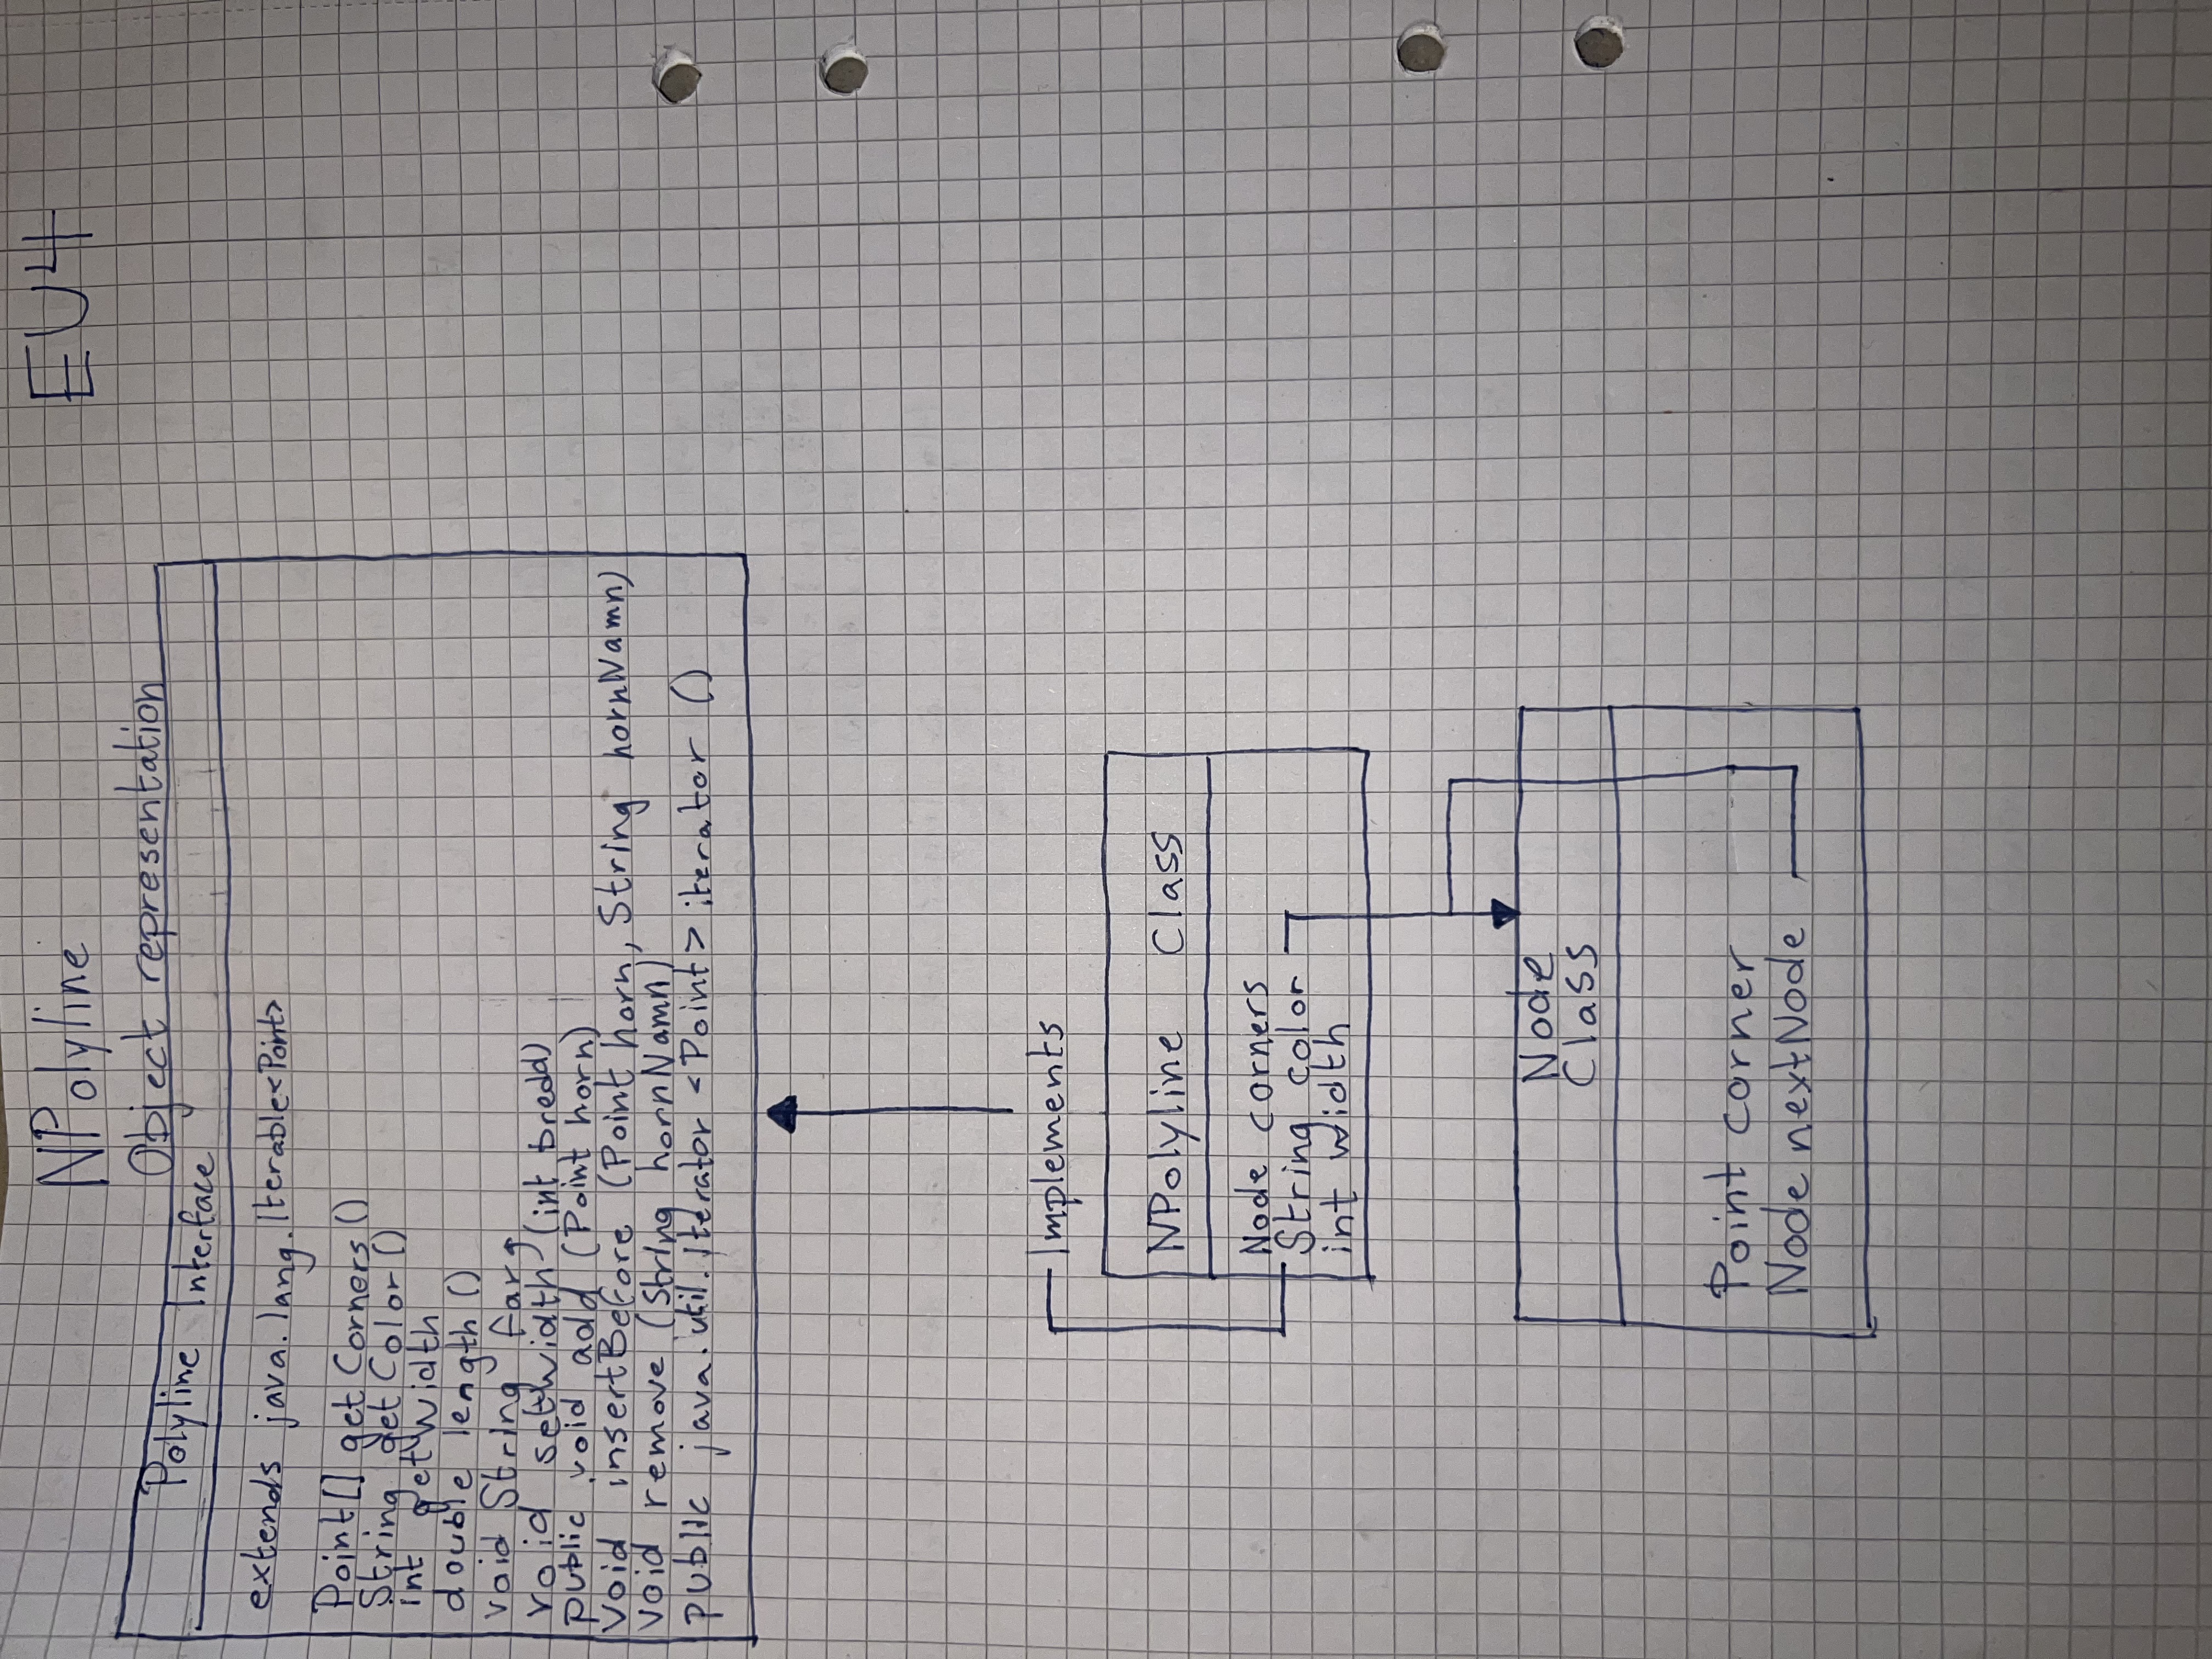 NPolyline
EU4
Object representation
Polyline Interface
extends java.lang.Iterable<Point>
Point[] getCorners()
String getColor()
int getWidth
double length()
void String farg
void setWidth (int bredd)
public void add (Point horn)
void insertBefore (Point horn, String hornNamn)
void remove (String hornNamn)
public java.util.Iterator <Point> iterator ()
Implements
NPolyline Class
Node corners
String color
int width
Node
Class
Point corner
Node nextNode